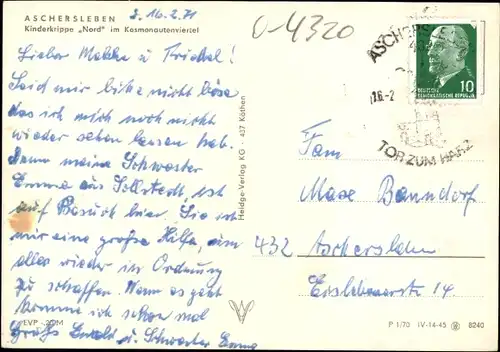 ASCHERSLEBEN
Kinderkrippe „Nord" im Kosmonautenviertel
16.2.71
0-4320
Lieber Malchen u. Friedel!
Seid mir bitte nicht böse
das ich mich noch nicht
wieder sehen lassen hab.
Denn meine Schwester
Emma aus Sollstedt, ist
auf Besuch hier. Sie ist
mir eine große Hilfe, um
alles wieder in Ordnung
zu schaffen. Wenn es geht
komme ich schon mal
Grüße Ewald u. Schwester Emma
EVP -,20 M
Heldge-Verlag KG · 437 Köthen
ASCHERSLE
16.-2
TOR ZUM HARZ
DEUTSCHE
DEMOKRATISCHE REPUBLIK
10
Fam
Max Banndorf
432 Aschersleben
Eislebenerstr. 14
P 1/70 IV-14-45 8240